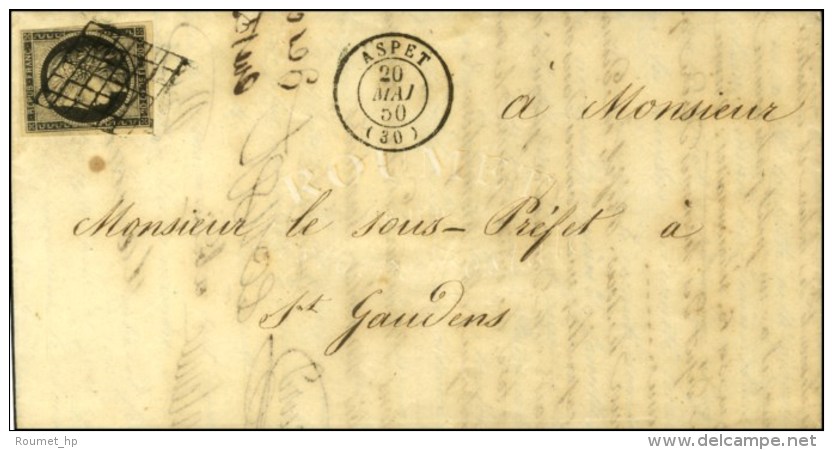 REPUB. FRANC.
ASPET
20
MAI
50
(30)
à Monsieur
Monsieur le sous-Préfet à
St Gaudens
ROUMET
Roumet_hp
delcampe.net